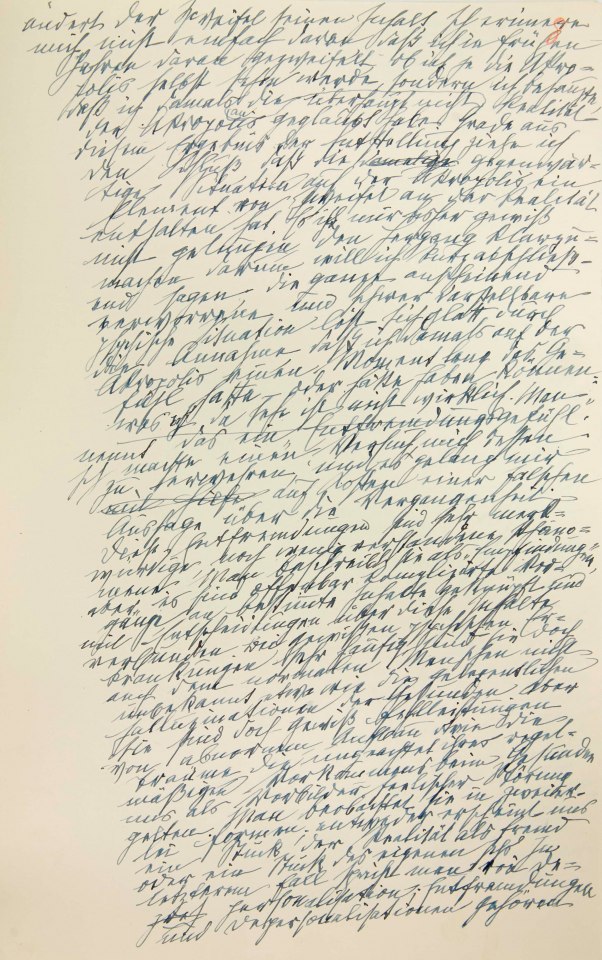 ändert der Zweifel seinen Inhalt. Ich erinnere
mich nicht einfach daran, daß ich in frühen
Jahren daran gezweifelt, ob ich je die Akro-
polis selbst sehen werde, sondern ich behaupte
daß ich damals die überhaupt nicht an Realität
der Akropolis geglaubt habe. Grade aus
diesem Ergebnis der Entstellung ziehe ich
den Schluß daß die damalige gegenwär-
tige Situation auf der Akropolis ein
Element von Zweifel an der Realität
enthalten hat. Es ist mir bisher gewiß
nicht gelungen den Hergang klarzu-
machen darum will ich kurz abschließ-
end sagen, die ganze anscheinend
verworrene und schwer darstellbare
psychische Situation löst sich glatt durch
die Annahme, daß ich damals auf der
Akropolis einen Moment lang das Ge-
fühl hatte – oder hätte haben können:
was ich da sehe ist nicht wirklich. Man
nennt das ein „Entfremdungsgefühl".
Ich machte einen Versuch, mich dessen
zu erwehren, und es gelang mir
mit Hilfe auf Kosten einer falschen
Aussage über die Vergangenheit.
Diese Entfremdungen sind sehr merk-
würdige, noch wenig verstandene Phäno-
mene. Man beschreibt sie als „Empfindungen",
aber es sind offenbar komplizirte Vor-
gänge an bestimte Inhalte geknüpft und
mit Entscheidungen über diese Inhalte
verbunden. Bei gewissen psychischen Er-
krankungen sehr häufig, sind sie doch
auch dem normalen Menschen nicht
unbekannt, etwa wie die gelegentlichen
Halluzinationen der Gesunden. Aber
sie sind doch gewiß Fehlleistungen
von abnormem Aufbau wie die
Träume, die ungeachtet ihres regel-
mäßigen Vorkommens beim Gesunden
uns als Vorbilder seelischer Störung
gelten. Man beobachtet sie in zweier-
lei Formen; entweder erscheint uns
ein Stück der Realität als fremd
oder ein Stück des eigenen Ichs. In
letzterem Fall spricht man von „De-
personalisation"; Entfremdungen
und Depersonalisationen gehören